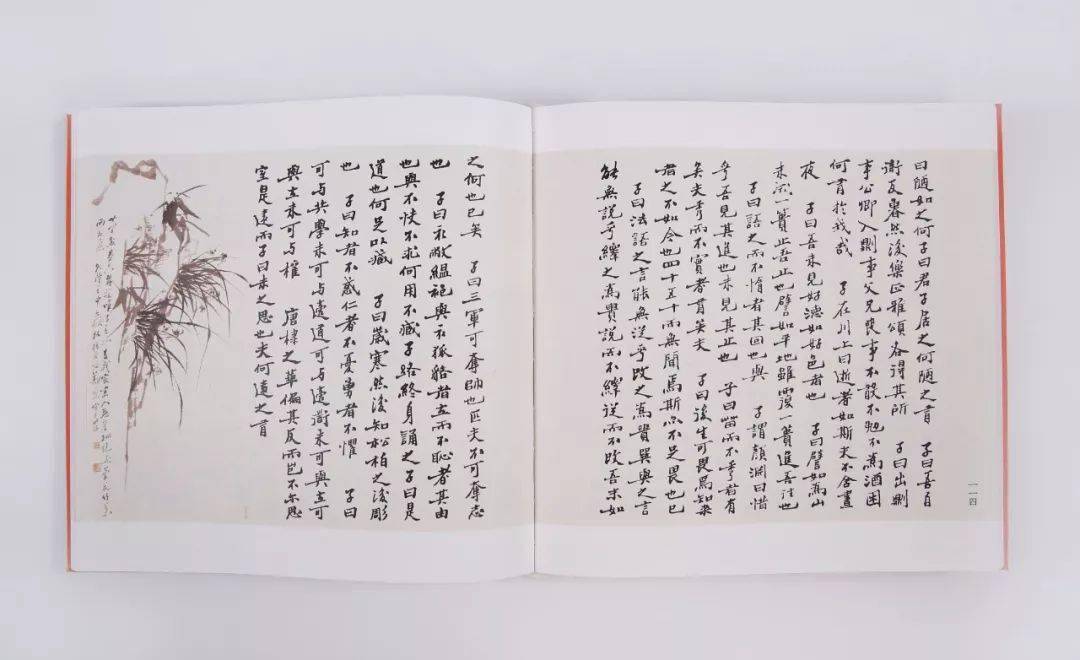 曰陋如之何子曰君子居之何陋之有　子曰吾自
衛反魯然後樂正雅頌各得其所　子曰出則
事公卿入則事父兄喪事不敢不勉不為酒困
何有於我哉　子在川上曰逝者如斯夫不舍晝
夜　子曰吾未見好德如好色者也　子曰譬如為山
未成一簣止吾止也譬如平地雖覆一簣進吾往也
子曰語之而不惰者其回也與　子謂顏淵曰惜
乎吾見其進也未見其止也　子曰苗而不秀者有
矣夫秀而不實者有矣夫　子曰後生可畏焉知來
者之不如今也四十五十而無聞焉斯亦不足畏也已
子曰法語之言能無從乎改之為貴巽與之言
能無說乎繹之為貴說而不繹從而不改吾末如
一一四
之何也已矣　子曰三軍可奪帥也匹夫不可奪志
也　子曰衣敝縕袍與衣狐貉者立而不恥者其由
也與不忮不求何用不臧子路終身誦之子曰是
道也何足以臧　子曰歲寒然後知松柏之後彫
也　子曰知者不惑仁者不憂勇者不懼　子曰
可与共學未可与適道可与適道未可與立可
與立未可与權　唐棣之華偏其反而豈不尔思
室是遠而子曰未之思也夫何遠之有